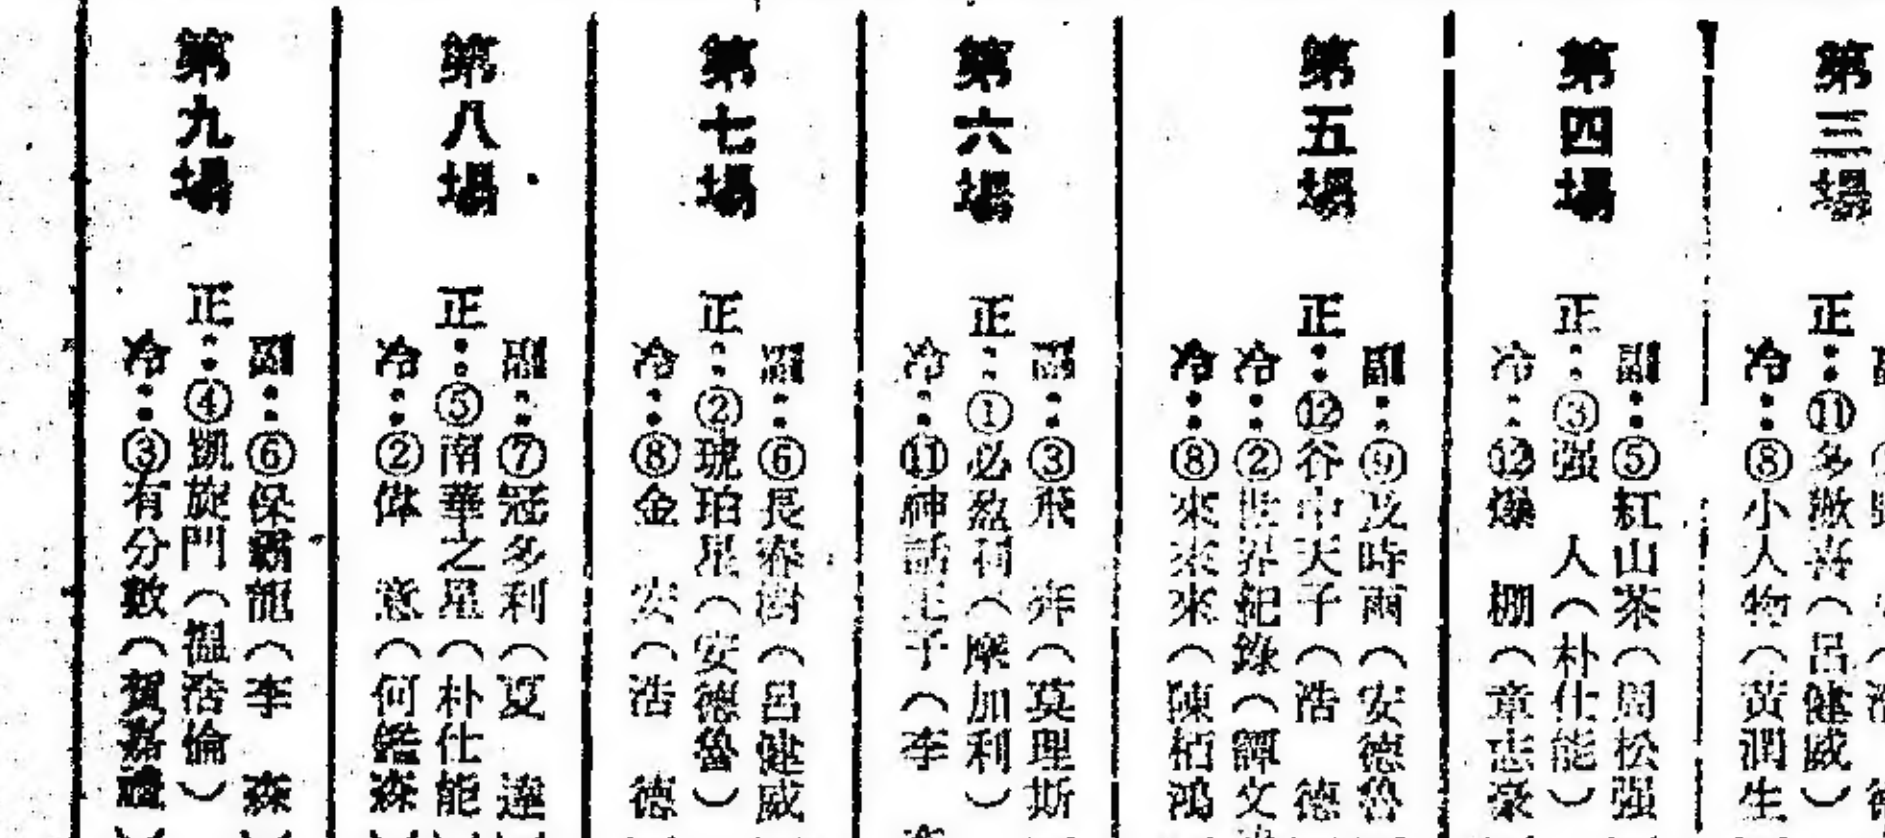 第三場
正：⑪多歡喜（呂健威）
冷：⑧小人物（黃潤生
第四場
副：⑤紅山茶（周松强
正：③强　人（朴仕能）
冷：⑫爆　棚（章志豪
第五場
副：⑨及時雨（安德魯
正：⑫谷中天子（浩　德
冷：②世界紀錄（譚文
冷：⑧來來來（陳栢鴻
第六場
副：③飛　奔（莫理斯
正：①必盈利（摩加利）
冷：⑪神話王子（李
第七場
副：⑥長春樹（呂健威
正：②琥珀星（安德魯）
冷：⑧金　安（浩　德
第八場
副：⑦冠多利（夏　達
正：⑤南華之星（朴仕能
冷：②偉　意（何鑑森
第九場
副：⑥保霸龍（李　森
正：④凱旋門（溫浩倫）
冷：③有分數（賀嘉禮